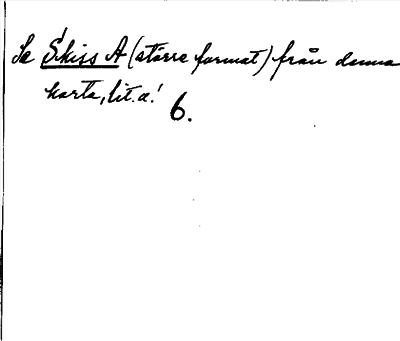 Se Skiss A (större format) från denna
karta, lit. a!
6.